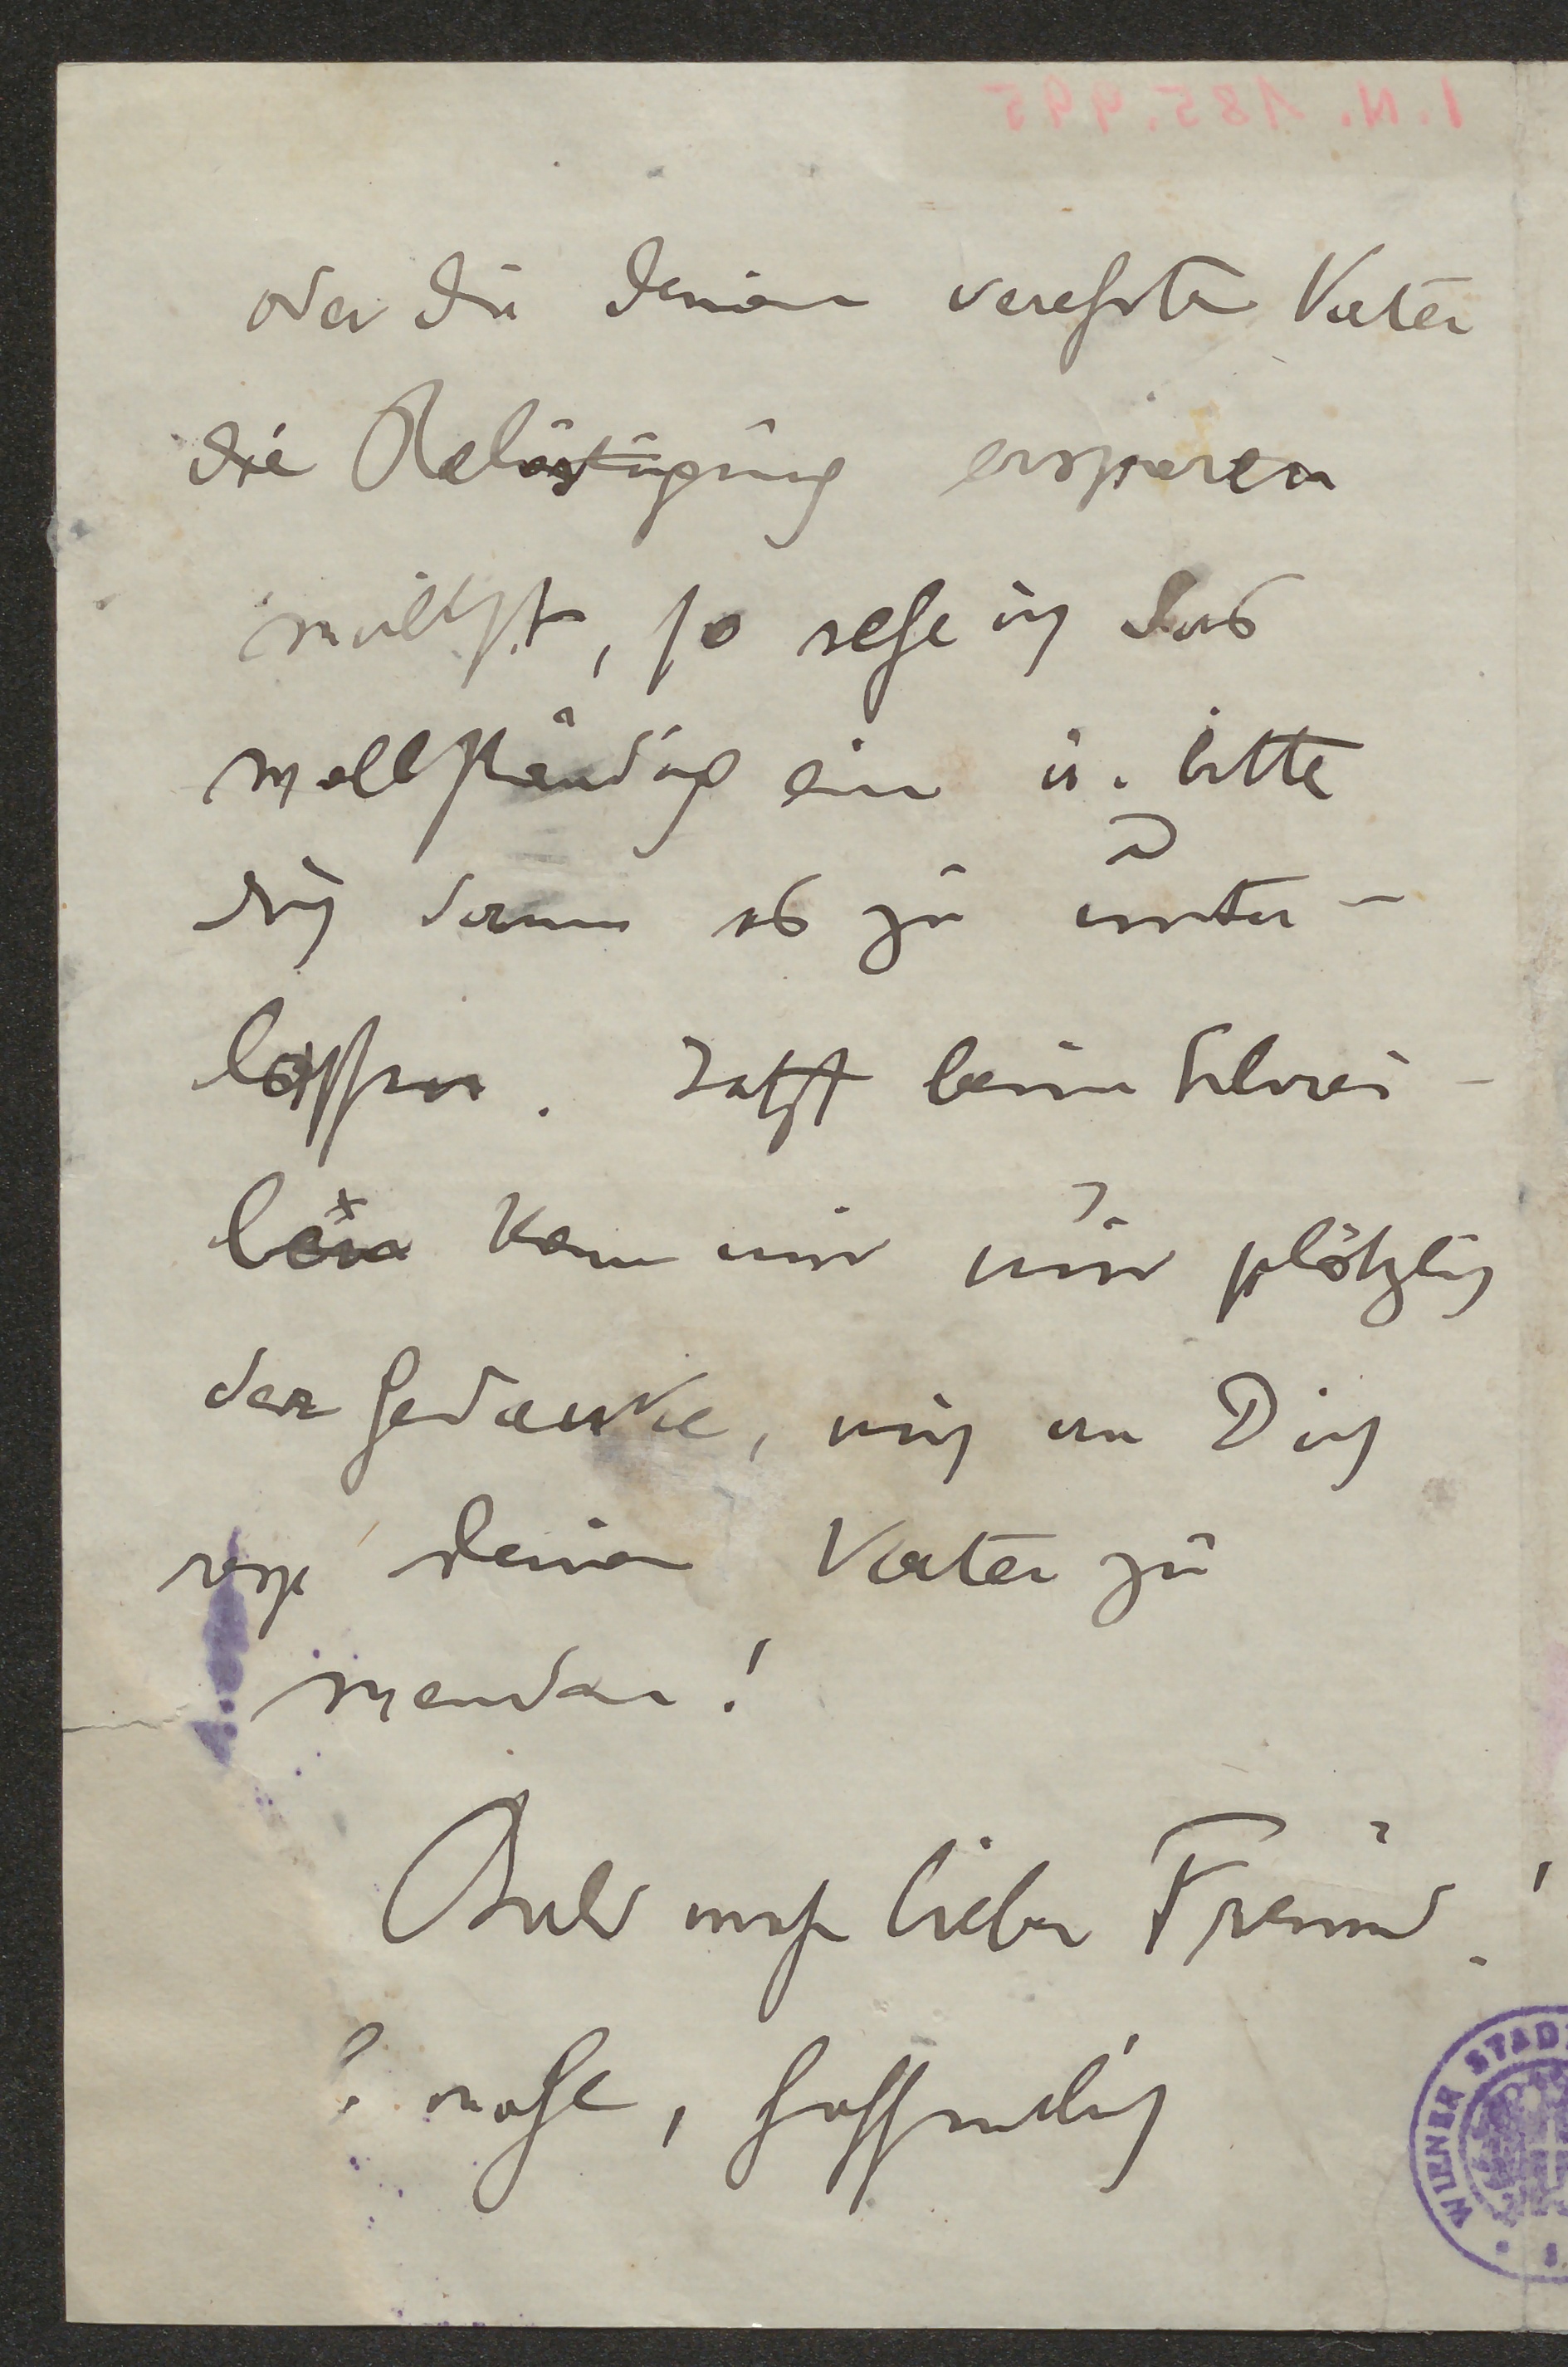 I.N. 185.995
oder du deinem verehrten Vater
die Belästigung ersparen
willst, so sehe ich das
vollständig ein u. bitte
dich dann es zu unter-
lassen. Jetzt beim Schrei-
ben kam mir nur plötzlich
der Gedanke, mich an Dich
resp deinen Vater zu
wenden!
Bald mehr lieber Freund!
nahe, hoffentlich
WIENER STAD